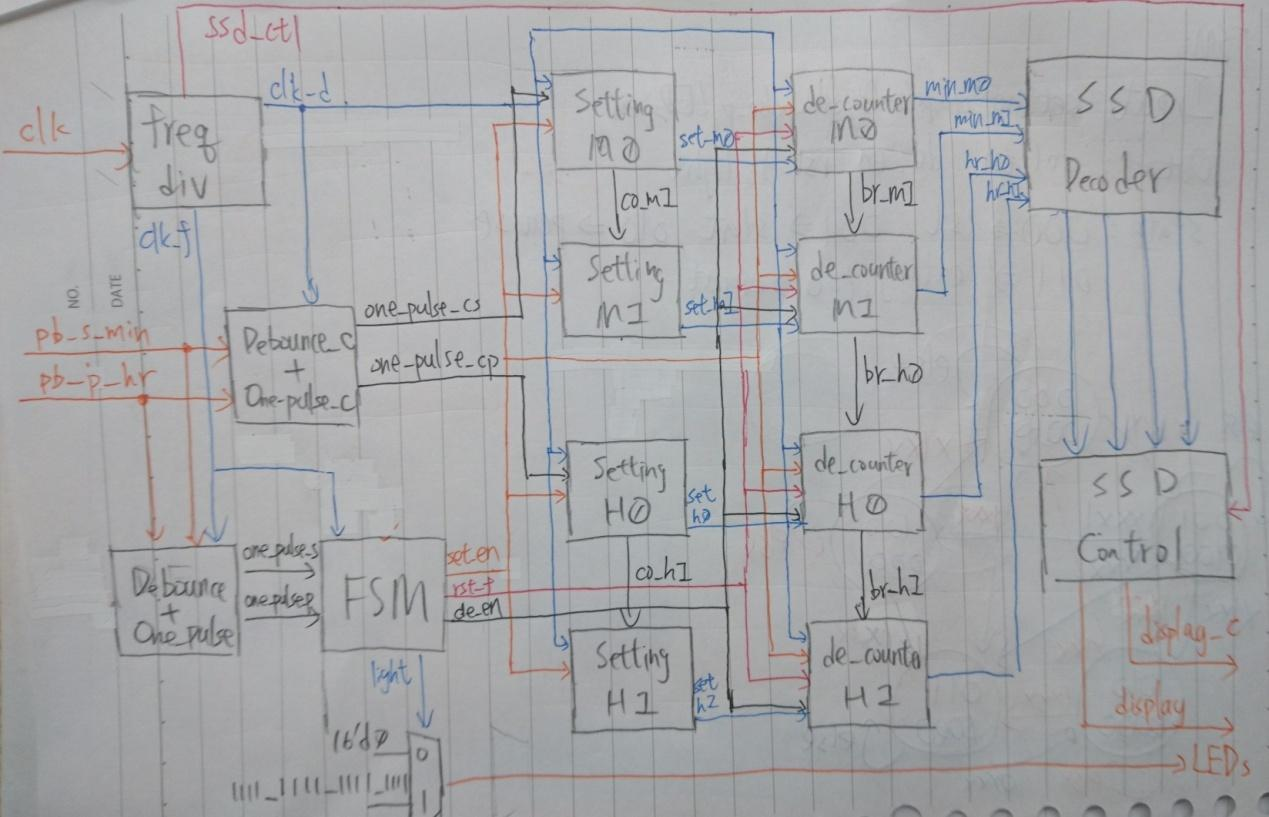 ssd_ctl
clk
freq
div
clk-d
clk_f
NO.
DATE
pb_s_min
pb-p-hr
Debounce_c
+
One-pulse_c
one_pulse_cs
one_pulse_cp
Debounce
+
One_pulse
one_pulse_s
one_pulse_p
FSM
set_en
rst_f
de_en
light
16'd0
1111_1111_1111_1111
0
1
LEDs
Setting
M0
co_m1
Setting
M1
Setting
H0
co_h1
Setting
H1
set_m0
set_m1
set
h0
set
h1
de_counter
M0
br_m1
de_counter
M1
br_h0
de_counter
H0
br_h1
de_counter
H1
min_m0
min_m1
hr_h0
hr_h1
SSD
Decoder
SSD
Control
display_c
display